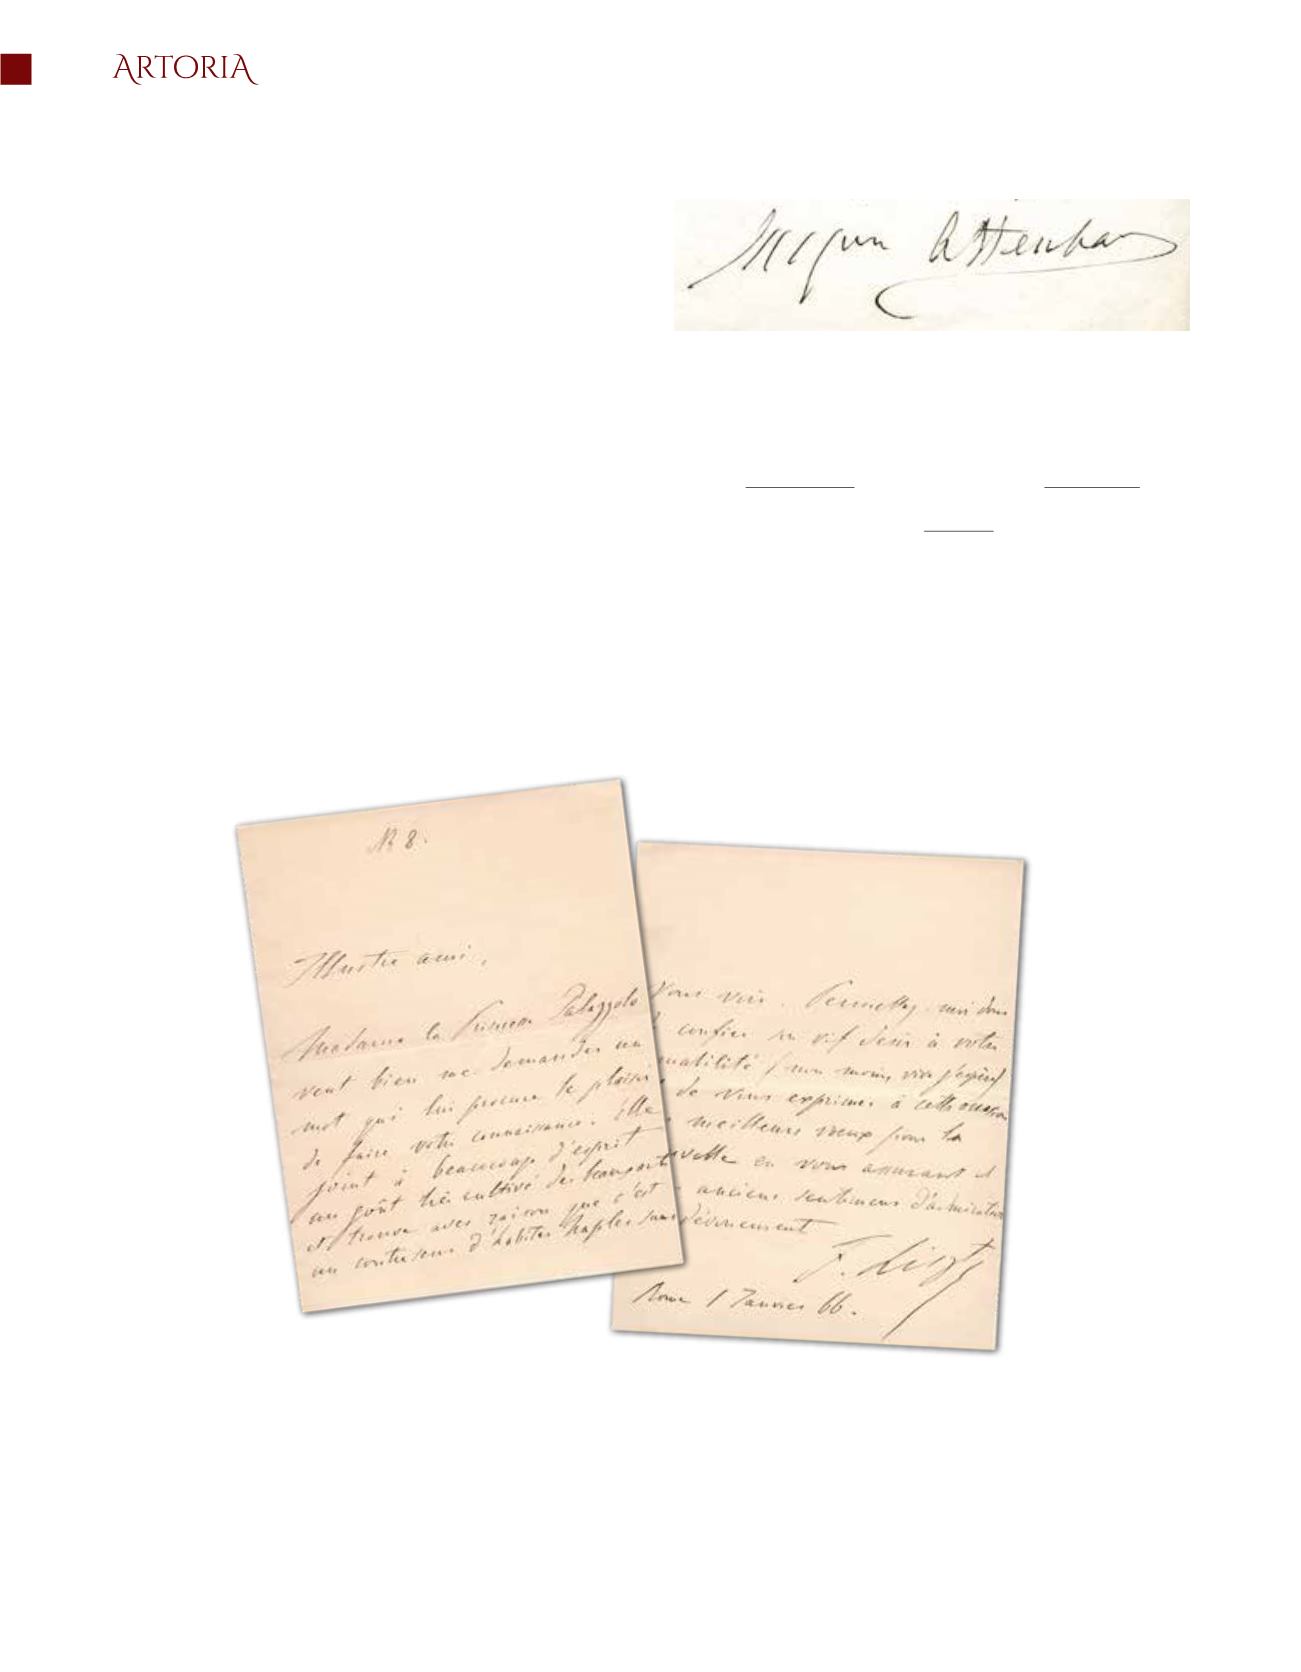 ARTORIA
Jacques Offenbach
N 8.
Illustre ami,
Madame la Princesse Palazzolo
veut bien me demander un
mot qui lui procure le plaisir
de faire votre connaissance. Elle
joint à beaucoup d'esprit
un goût très cultivé des beaux arts
et trouve avec raison que c'est
un contresens d'habiter Naples sans
vous voir. Permettez moi donc
confier son vif désir à votre
amabilité (non moins vive j'espère)
de vous exprimer à cette occasion
meilleurs vœux pour la
en vous assurant
anciens sentimens d'admiration
dévouement
F. Liszt
Rome 1 Janvier 66.